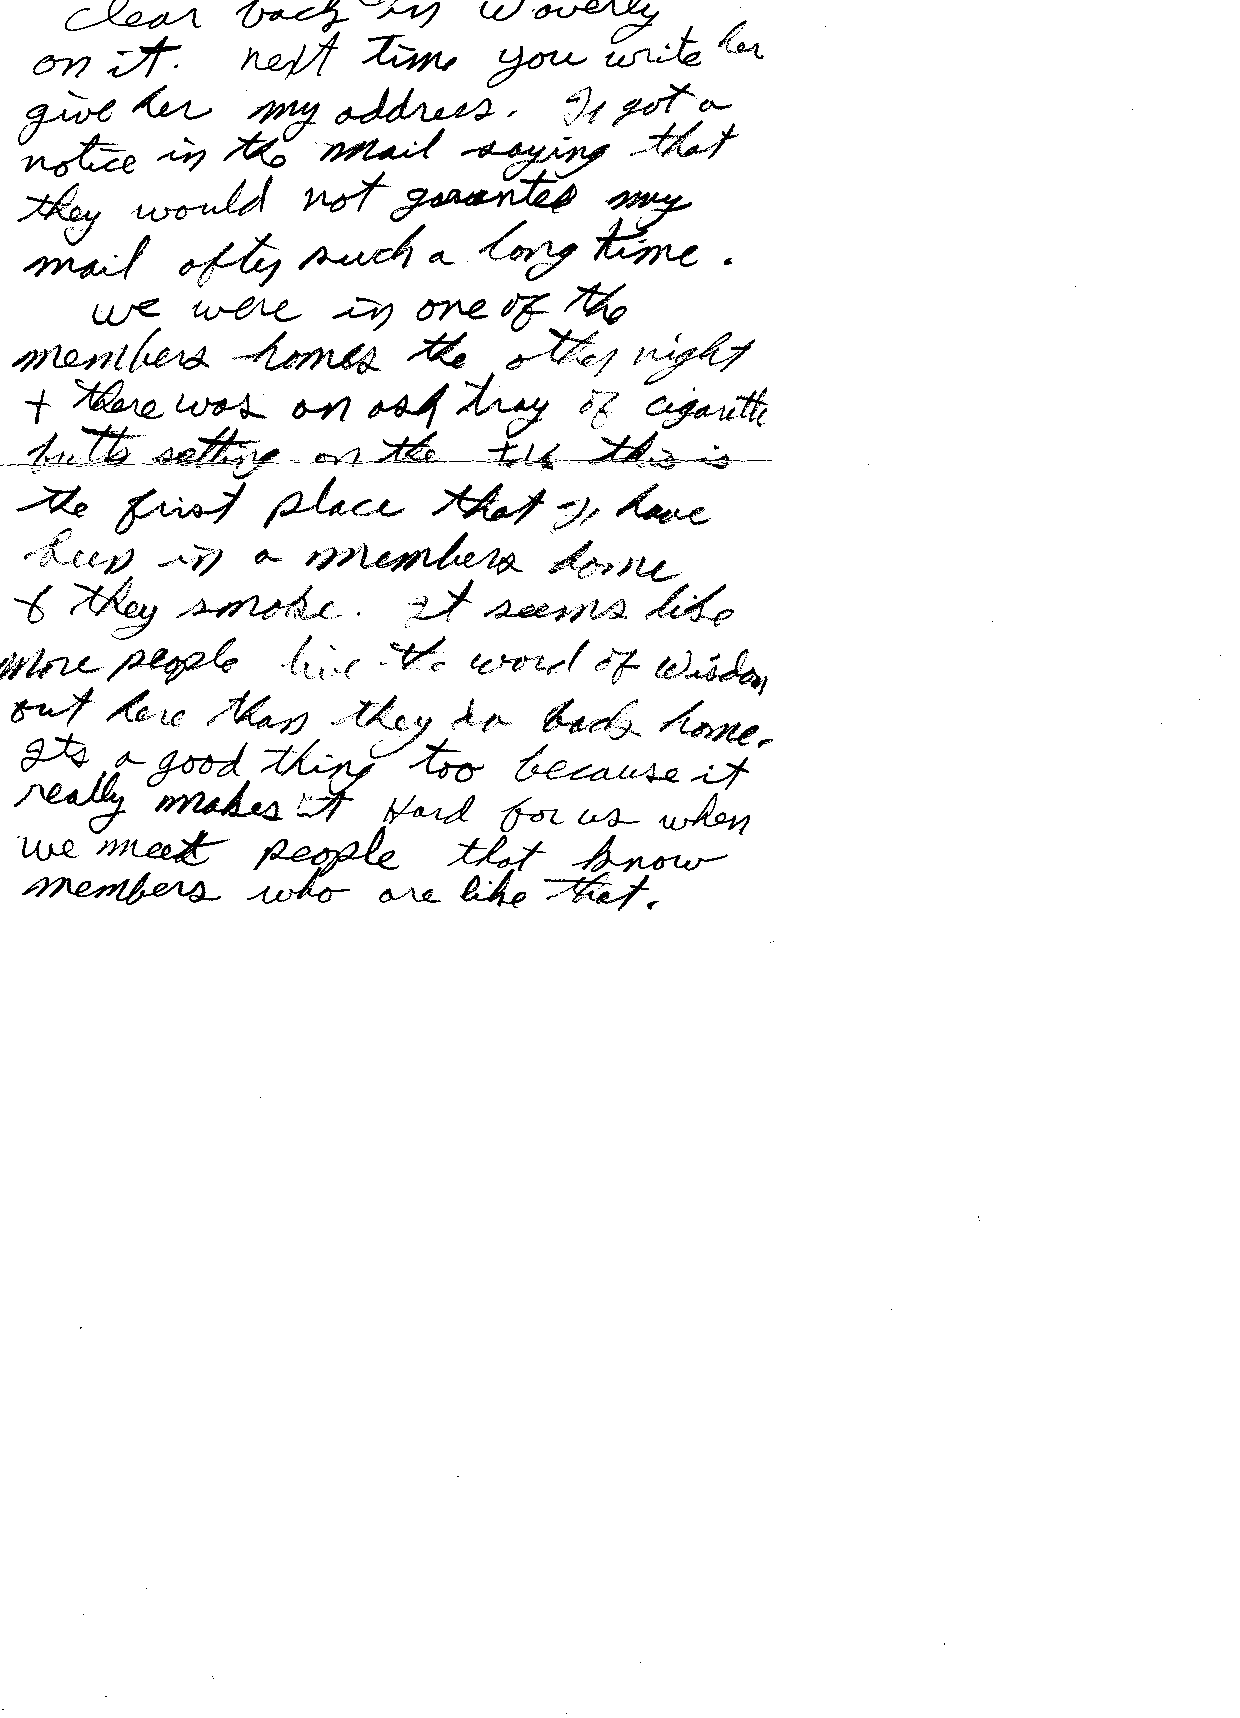 clear back in Waverly
on it. next time you write her
give her my address. I got a
notice in the mail saying that
they would not garantee my
mail after such a long time.
we were in one of the
members homes the other night
+ there was an ash tray of cigarette
butts setting on the this is
the first place that I have
been in a members home
& they smoke. It seems like
more people live the word of Wisdom
out here than they do back home.
Its a good thing too because it
really makes it Hard for us when
we meet people that know
members who are like that.